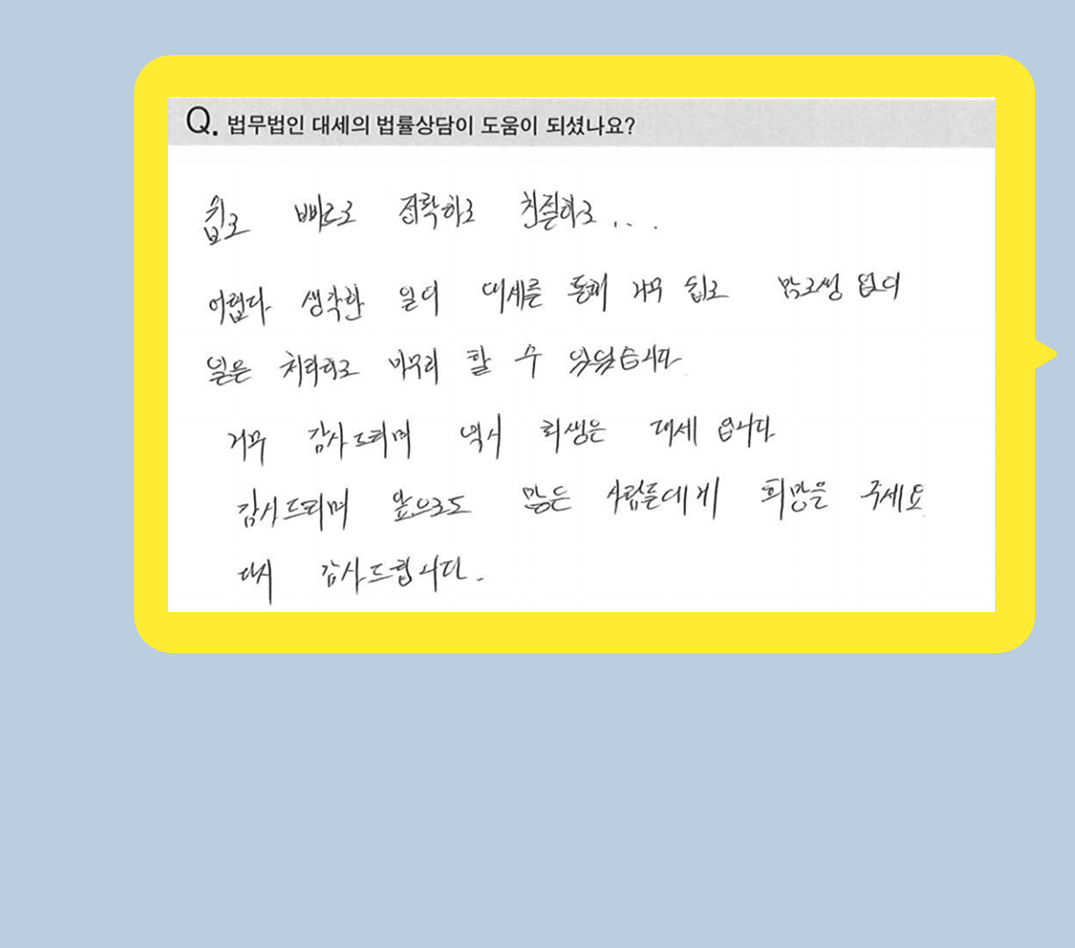 Q. 법무법인 대세의 법률상담이 도움이 되셨나요?
쉽고 빠르고 정확하고 친절하고...
어렵다 생각한 일이 대세를 통해 너무 쉽고 맘고생 없이
일을 처리하고 마무리 할 수 있었습니다
너무 감사드리며 역시 회생은 대세 입니다
감사드리며 앞으로도 많은 사람들에게 희망을 주세요
다시 감사드립니다.